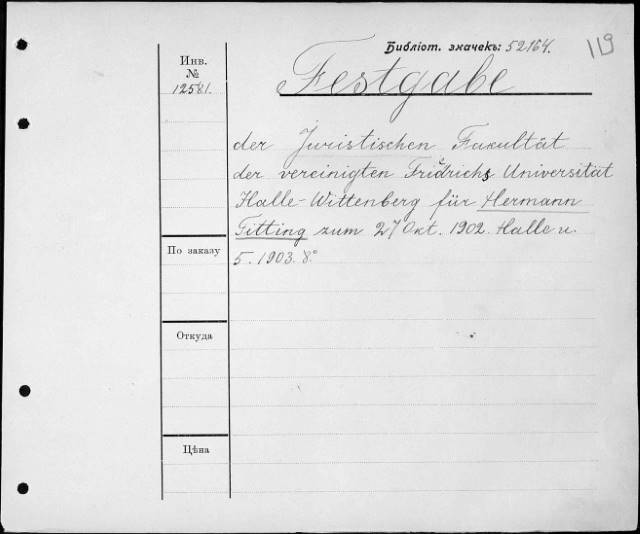 Библіот. значекъ: 52164.
119
Инв.
№
12581.
Festgabe
der Juristischen Fakultät
der vereinigten Friedrichs Universität
Halle-Wittenberg für Hermann
Fitting zum 27 Okt. 1902. Halle u.
5. 1903. 8°
По заказу
Откуда
Цѣна